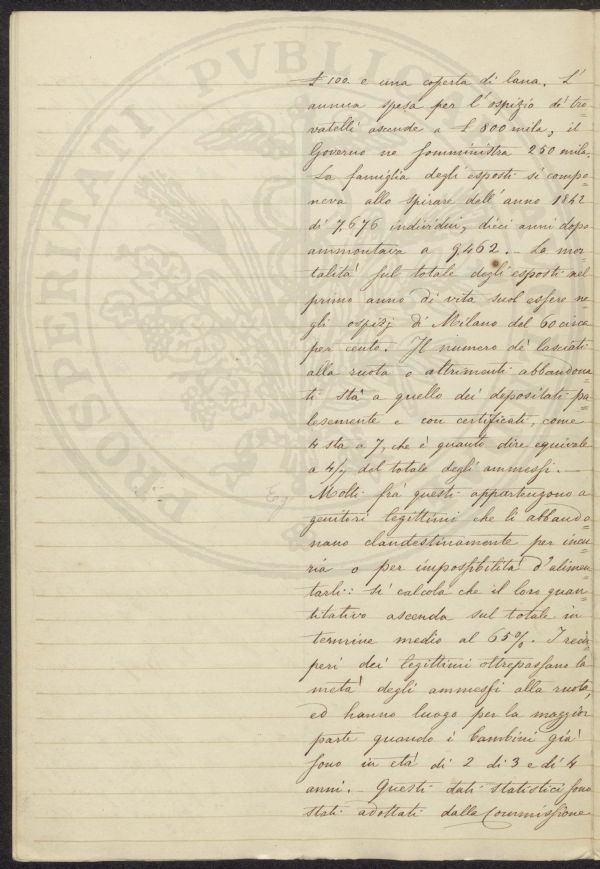 PROSPERITATI PVBLICAE
£ 100. e una coperta di lana. L'
annua spesa per l'ospizio de' tro=
vatelli ascende a £ 800 mila, il
Governo ne somministra 250 mila.
La famiglia degli esposti si compo=
neva allo spirare dell'anno 1842
di 7,676 individui, dieci anni dopo
ammontava a 9,462. – La mor=
talità sul totale degli esposti nel
primo anno di vita suol essere ne=
gli ospizj di Milano del 60 circa
per cento. Il numero de' lasciati
alla ruota o altrimenti abbandona=
ti sta a quello dei depositati pa=
lesemente e con certificati, come
4 sta a 7, che è quanto dire equivale
a 4/7 del totale degli ammessi. –
Molti frà questi appartengono a
genitori legittimi che li abbando=
nano clandestinamente per incu=
ria o per impossibilità d'alimen=
tarli: si calcola che il loro quan=
titativo ascenda sul totale in
termine medio al 65%. I recu=
peri dei legittimi oltrepassano la
metà degli ammessi alla ruota,
ed hanno luogo per la maggior
parte quando i bambini già
sono in età di 2 di 3 e di 4
anni. – Questi dati statistici sono
stati adottati dalla Commissione